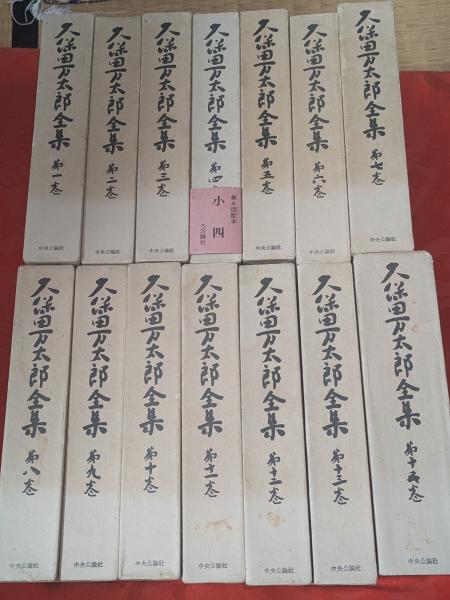 久保田万太郎全集 第一巻 中央公論社
久保田万太郎全集 第二巻 中央公論社
久保田万太郎全集 第三巻 中央公論社
久保田万太郎全集 第四
第4回配本
小 四
久保田万太郎全集 第五巻 中央公論社
久保田万太郎全集 第六巻 中央公論社
久保田万太郎全集 第七巻 中央公論社
久保田万太郎全集 第八巻 中央公論社
久保田万太郎全集 第九巻 中央公論社
久保田万太郎全集 第十巻 中央公論社
久保田万太郎全集 第十一巻 中央公論社
久保田万太郎全集 第十二巻 中央公論社
久保田万太郎全集 第十三巻 中央公論社
久保田万太郎全集 第十五巻 中央公論社